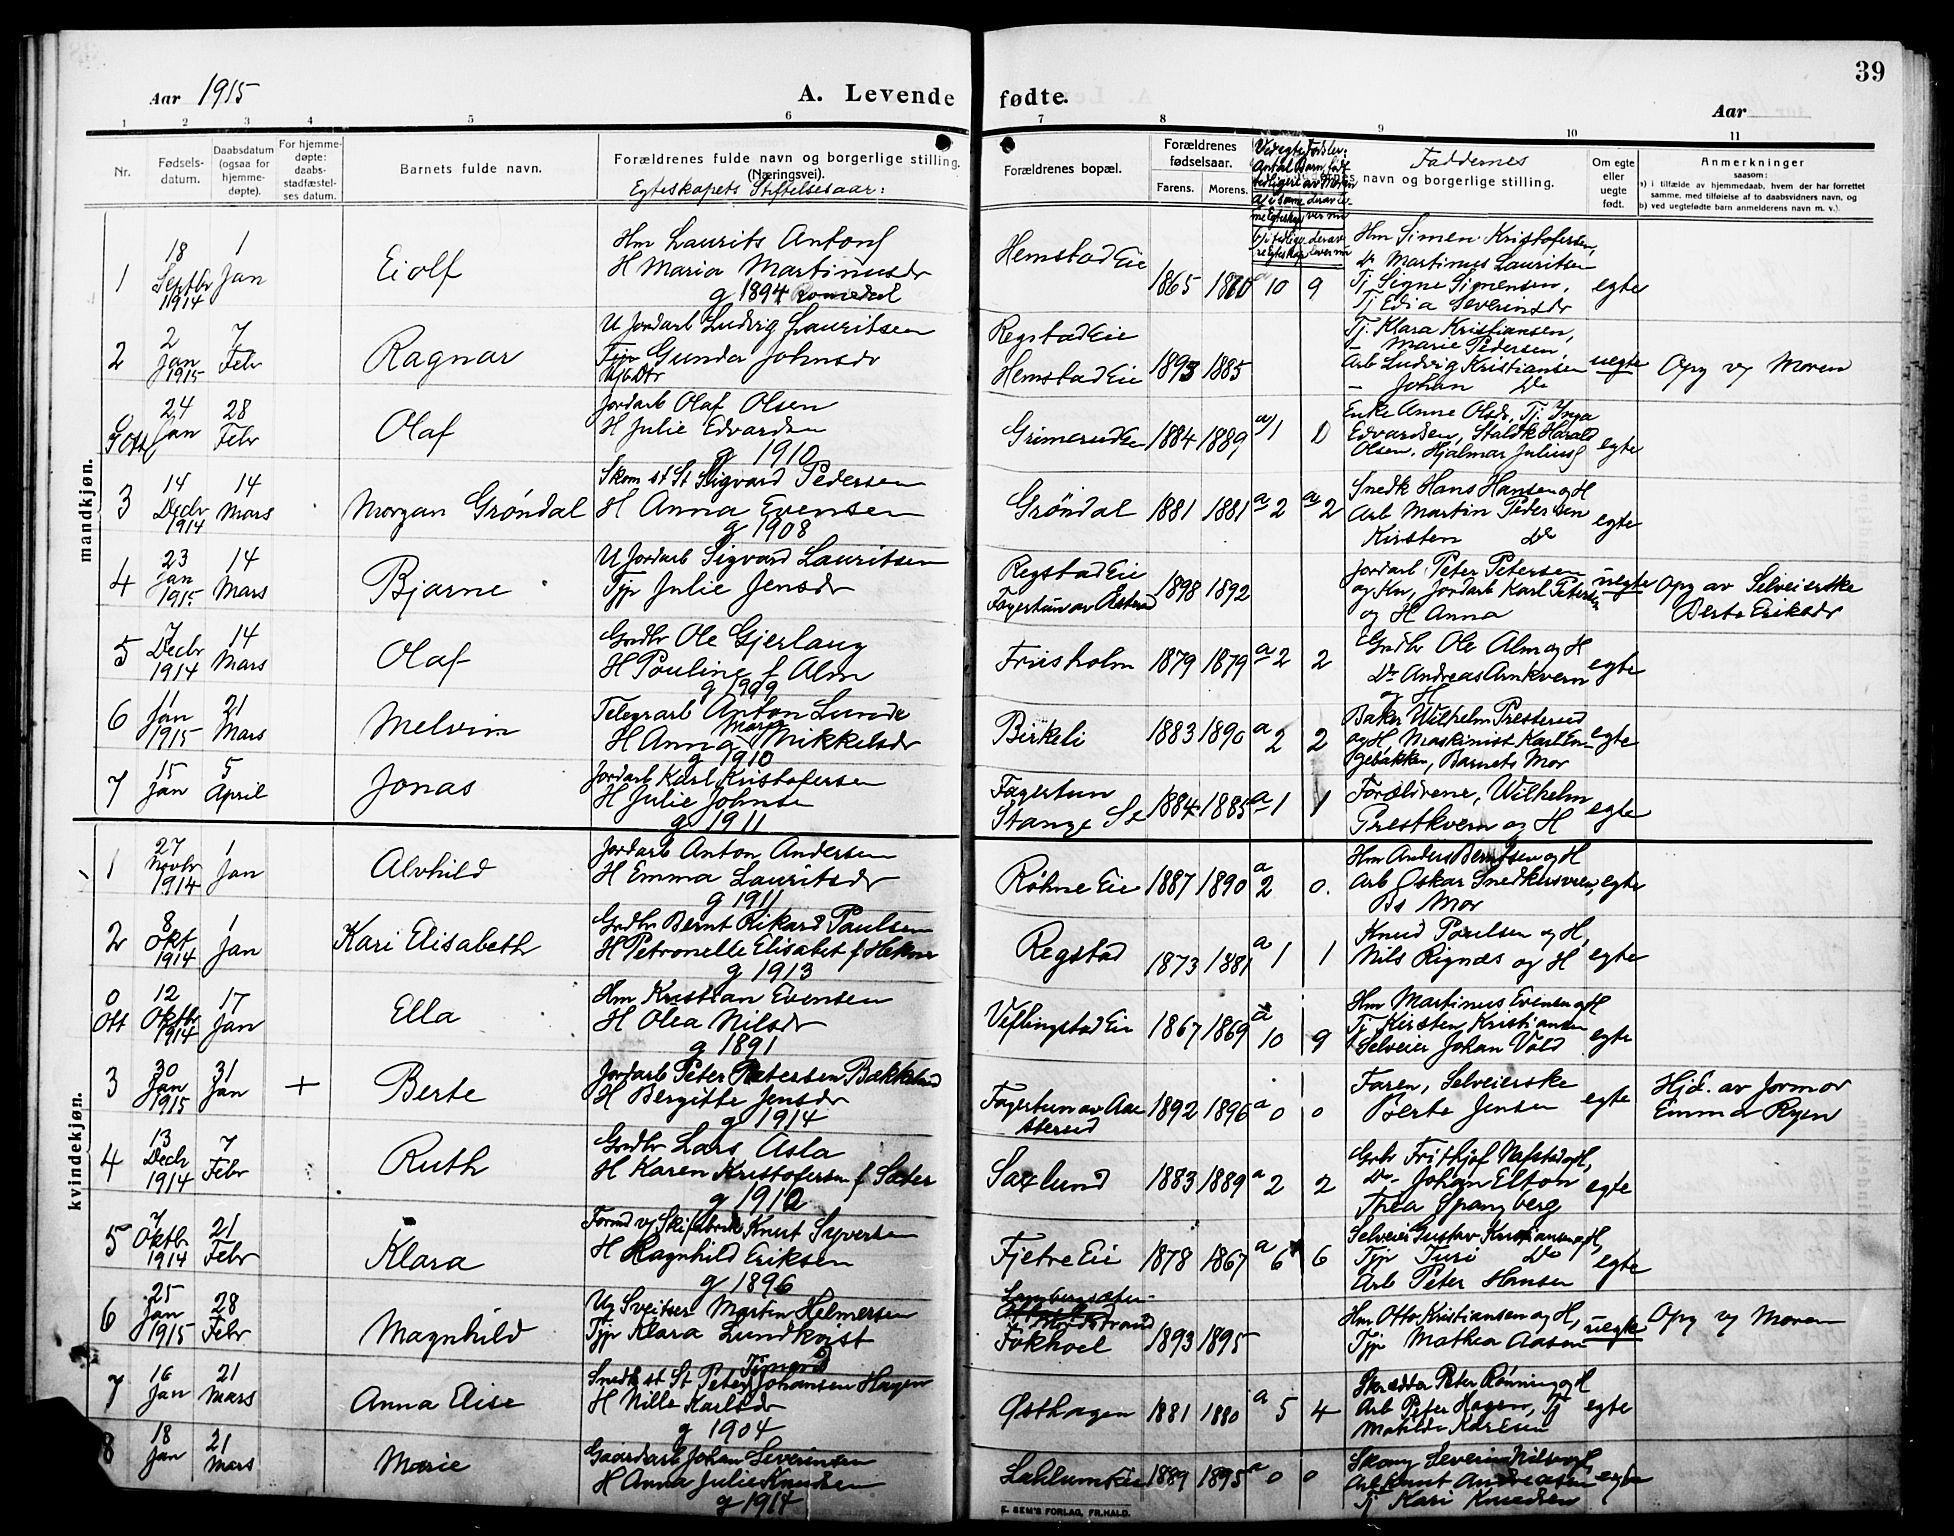 39
Aar 1915
A. Levende fødte.
Aar
1 2 3 4 5 6 7 8 9 10 11
Nr.
Fødsels-
datum.
Daabsdatum
(ogsaa for
hjemme-
døpte).
For hjemme-
døpte:
daabs-
stadfæstel-
ses datum.
Barnets fulde navn.
Forældrenes fulde navn og borgerlige stilling.
(Næringsvei).
Egteskapets Stiftelsesaar:
Forældrenes bopæl.
Forældrenes
fødselsaar.
Farens. Morens.
Faddernes
navn og borgerlige stilling.
Om egte
eller
uegte
født.
Anmerkninger
saasom:
a) i tilfælde av hjemmedaab, hvem der har forrettet
samme, med tilføielse af to daabsvidners navn, og
b) ved uegtefødte barn anmelderens navn m. v.).
mandkjøn.
1 18 Septbr 1914 1 Jan Eiolf
Hm Laurits Anton
H Maria Martinusdr
g 1894 Romedal
Hemstad Eie 1865 1870 a 10 9
Hm Simen Kristofersen,
Do Martinus Lauritsen
Tj Signe Simensen,
Tj Edia Severinsdr
egte
2 2 Jan 1915 7 Febr Ragnar
U Jordarb Ludvig Lauritsen
Gunda Johnsdr
Regstad Eie
Hemstad Eie 1893 1885
Tj. Klara Kristiansen,
— Marie Pedersen,
Arb Ludvig Kristiansen
— Johan Do
uegte Opg v Moren
0 Ott 24 Jan 28 Febr Olaf
Jordarb Olaf Olsen
H Julie Edvardsen
g 1910
Grimerud Eie 1884 1889 a 1 0
Enke Anne Olsdr, Tj. Inga
Edvardsen, Staldk Harald
Olsen, Hjalmar Julius
egte
3 14 Decbr 1914 14 Mars Morgan Grøndal
Skom st St Sigvard Pedersen
H Anna Evensen
g 1908
Grøndal 1881 1881 a 2 a 2
Snedk Hans Hansen og H
Arb Martin Pedersen
Kirsten Do
egte
4 23 Jan 1915 14 Mars Bjarne
U Jordarb Sigvard Lauritsen
Tjp Julie Jensdr
Regstad Eie
Fagertun av Aasterud 1898 1892
Jordarb Peter Petersen
og Hm, Jordarb Karl Petersen
og H Anna
uegte Opg av Selveierske
Berte Eriksdr
5 7 Decbr 1914 14 Mars Olaf
Grdbr Ole Gjerlaug
H Pouline f Alm
g 1909
Friisholm 1879 1879 a 2 2
Grdbr Ole Alm og H
Do Andreas Arnkvern
og H
egte
6 11 Jan 1915 21 Mars Melvin
Telegrarb Anton Lunde
H Anna Marie Mikkelsdr
g 1910
Birkeli 1883 1890 a 2 2
Baker Wilhelm Presterud
og H, Maskinist Karl En-
gebakken, Barnets Mor
egte
7 15 Jan 5 April Jonas
Jordarb Karl Kristofersen
H Julie Johnsen
g 1911
Fagertun
Stange St 1884 1885 a 1 1
Forældrene, Wilhelm
Prestkvern og H
egte
kvindekjøn.
1 27 Novbr 1914 1 Jan Alvhild
Jordarb Anton Andersen
H Emma Lauritsdr
g 1911
Røhne Eie 1887 1890 a 2 0.
Hm Anders Berntsen og H
Arb Oskar Snedkersveen,
Bs Mor
egte
2 8 Okt 1914 1 Jan Kari Elisabeth
Grdbr Bernt Rikard Paulsen
H Petronelle Elisabet f Hekne
g 1913
Regstad 1873 1881 a 1 1
Knud Poulsen og H,
Nils Rignæs og H
egte
0 Ott 12 Oktbr 1914 17 Jan Ella
Hm Kristian Evensen
H Olea Nilsdr
g 1891
Veflingstad Eie 1867 1869 a 10 9
Hm Martinus Evensen og H
Tj Kirsten Kristiansen
Selveier Johan Vold
egte
3 30 Jan 1915 31 Jan + Berte
Jordarb Peter Petersen Bækkelund
H Bergitte Jensdr
g 1914
Fagertun av Aas-
terud 1892 1896 a 0 0
Faren, Selveierske
Berte Jensen
egte Hjd. av Jormor
Emma Ryen
4 13 Decbr 1914 7 Febr Ruth
Grdbr Lars Asla
H Karen Kristofersen f Sæter
g 1912
Saxlund 1883 1889 a 2 2
Grbr Frithjof Nafstad og H,
Do Johan Elton
Thea Spangberg
egte
5 7 Oktbr 1914 21 Febr Klara
Formd v Skifabrik Knut Syversen
H Ragnhild Eriksen
g 1896
Fjetre Eie 1878 1867 a 6 6
Selveier Gustav Kristiansen og H,
Tjp Turi Do
Arb Peter Hansen
egte
6 25 Jan 1915 28 Febr Magnhild
Ug Sveitser Martin Helmersen
Tjp Klara Lundkvist
Fokhoel 1893 1895
Hm Otto Kristiansen og H,
Tjp Mathea Aasen
uegte Opg v Moren
7 16 Jan 21 Mars Anna Elise
Snedk st St Peter Johansen Hagen
H Nille Karlsdr
g 1904
Østhagen 1881 1880 a 5 4
Skrædder Peter Rønning og H
Arb Peter Hagen, Tj
Matilde Karlsen
egte
8 18 Jan 21 Mars Marie
Gaardsarb Johan Severinsen
H Anna Julie Knudsen
g 1914
Lahlum Eie 1889 1895 a 0 0
Skomg Severin Nilsen og H,
Arb Knut Andreasen
Tj Kari Knudsen
egte
E. SEM'S FORLAG, FR.HALD.